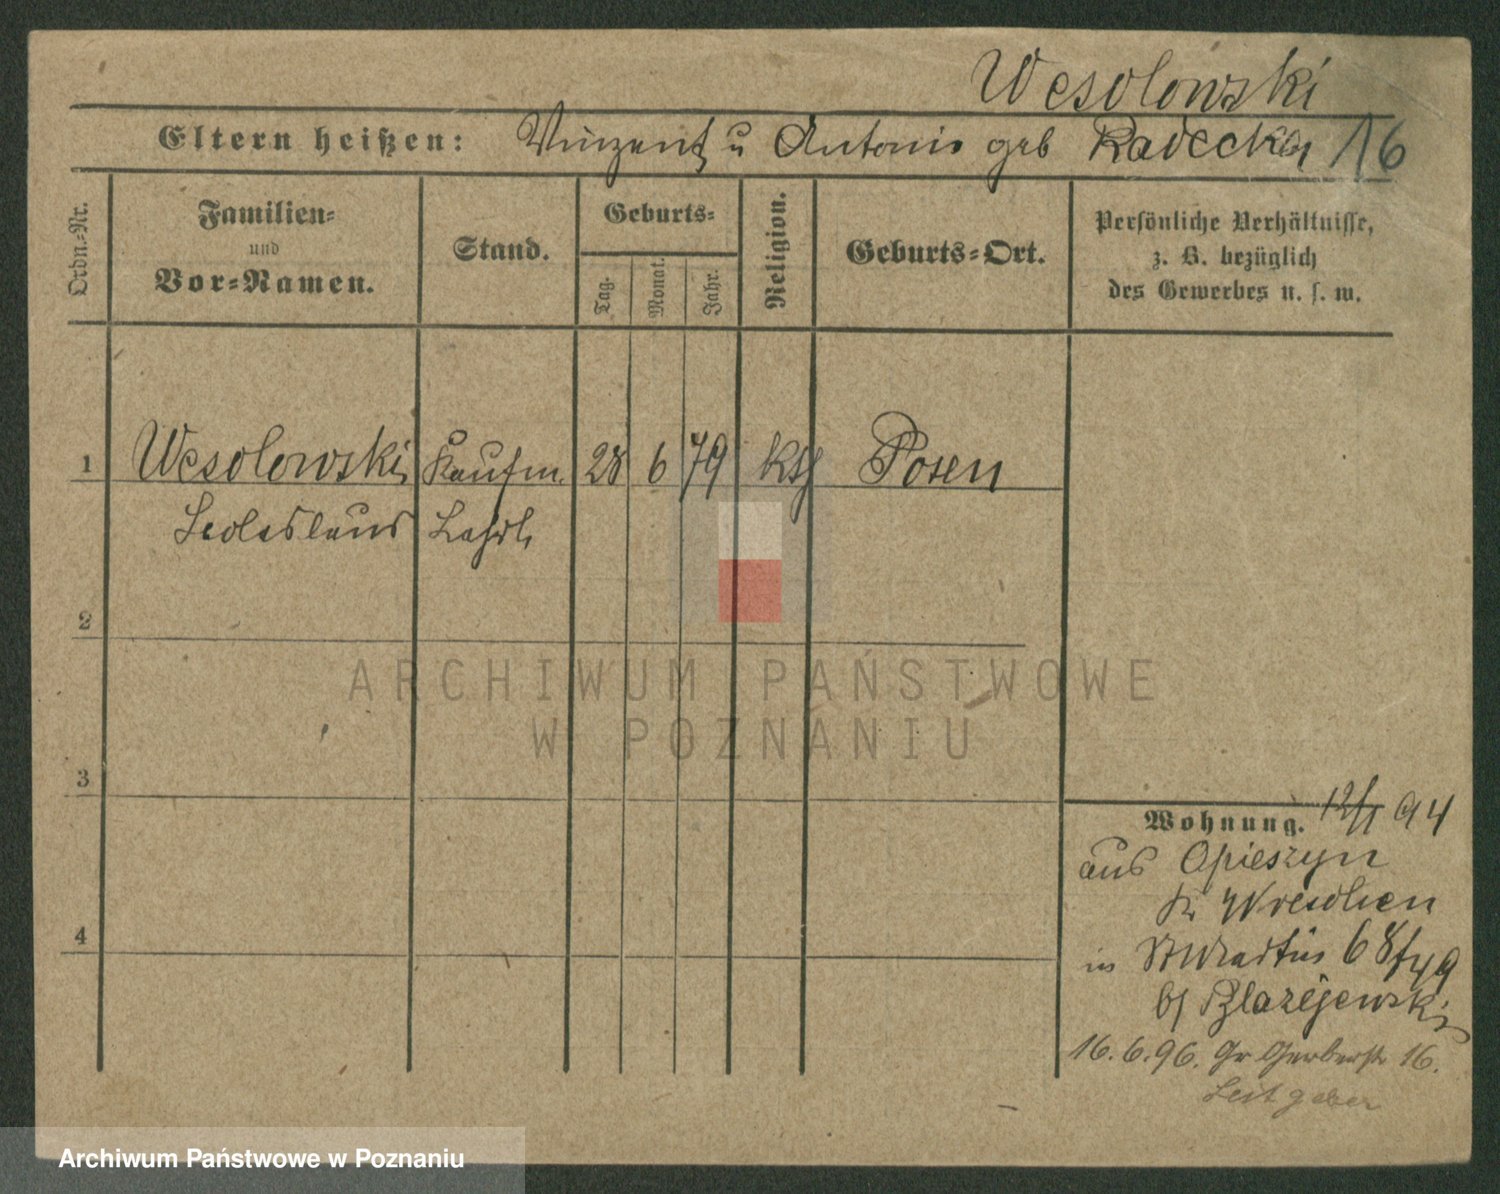 Wesolowski
Eltern heißen: Vinzent u Antonie geb Radecka 16
Ordn.-Nr.
Familien-
und
Vor-Namen.
Stand.
Geburts-
Tag.
Monat.
Jahr.
Religion.
Geburts-Ort.
Persönliche Verhältnisse,
z. B. bezüglich
des Gewerbes u. s. w.
1 Wesolowski Kaufm. 28 6 79 kth Posen
Boleslaus Lehrl.
2
3
4
Wohnung. 12/1 94
aus Opieszyn
Kr Wreschen
in St Martin 68/49
bj Blazejewski
16.6.96. Gr Gerberstr 16.
Leitgeber
ARCHIWUM PAŃSTWOWE
W POZNANIU
Archiwum Państwowe w Poznaniu